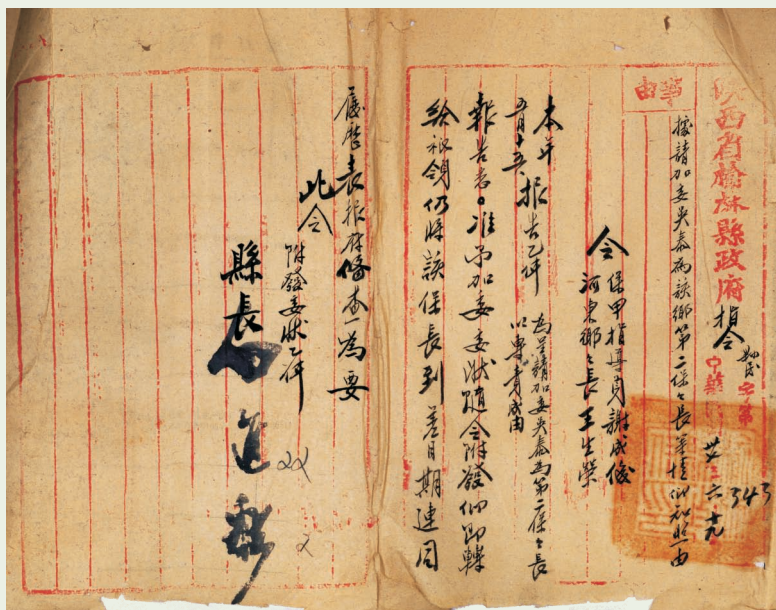 陝西省榆林縣政府指令
字第343
中華 廿三 六 十九
事由
據請加委吳泰為該鄉第二保保長等情仰知照由
令保甲指導員謝成俊
河東鄉鄉長王生榮
本年五月十五報告乙件為呈請加委吳泰為第二保保長以專責成由
報告悉。准予加委委狀隨令附發仰即轉
給祗領仍將該保長到差日期連同
履歷表報府俻查一為要
此令
附發委狀乙件
縣長